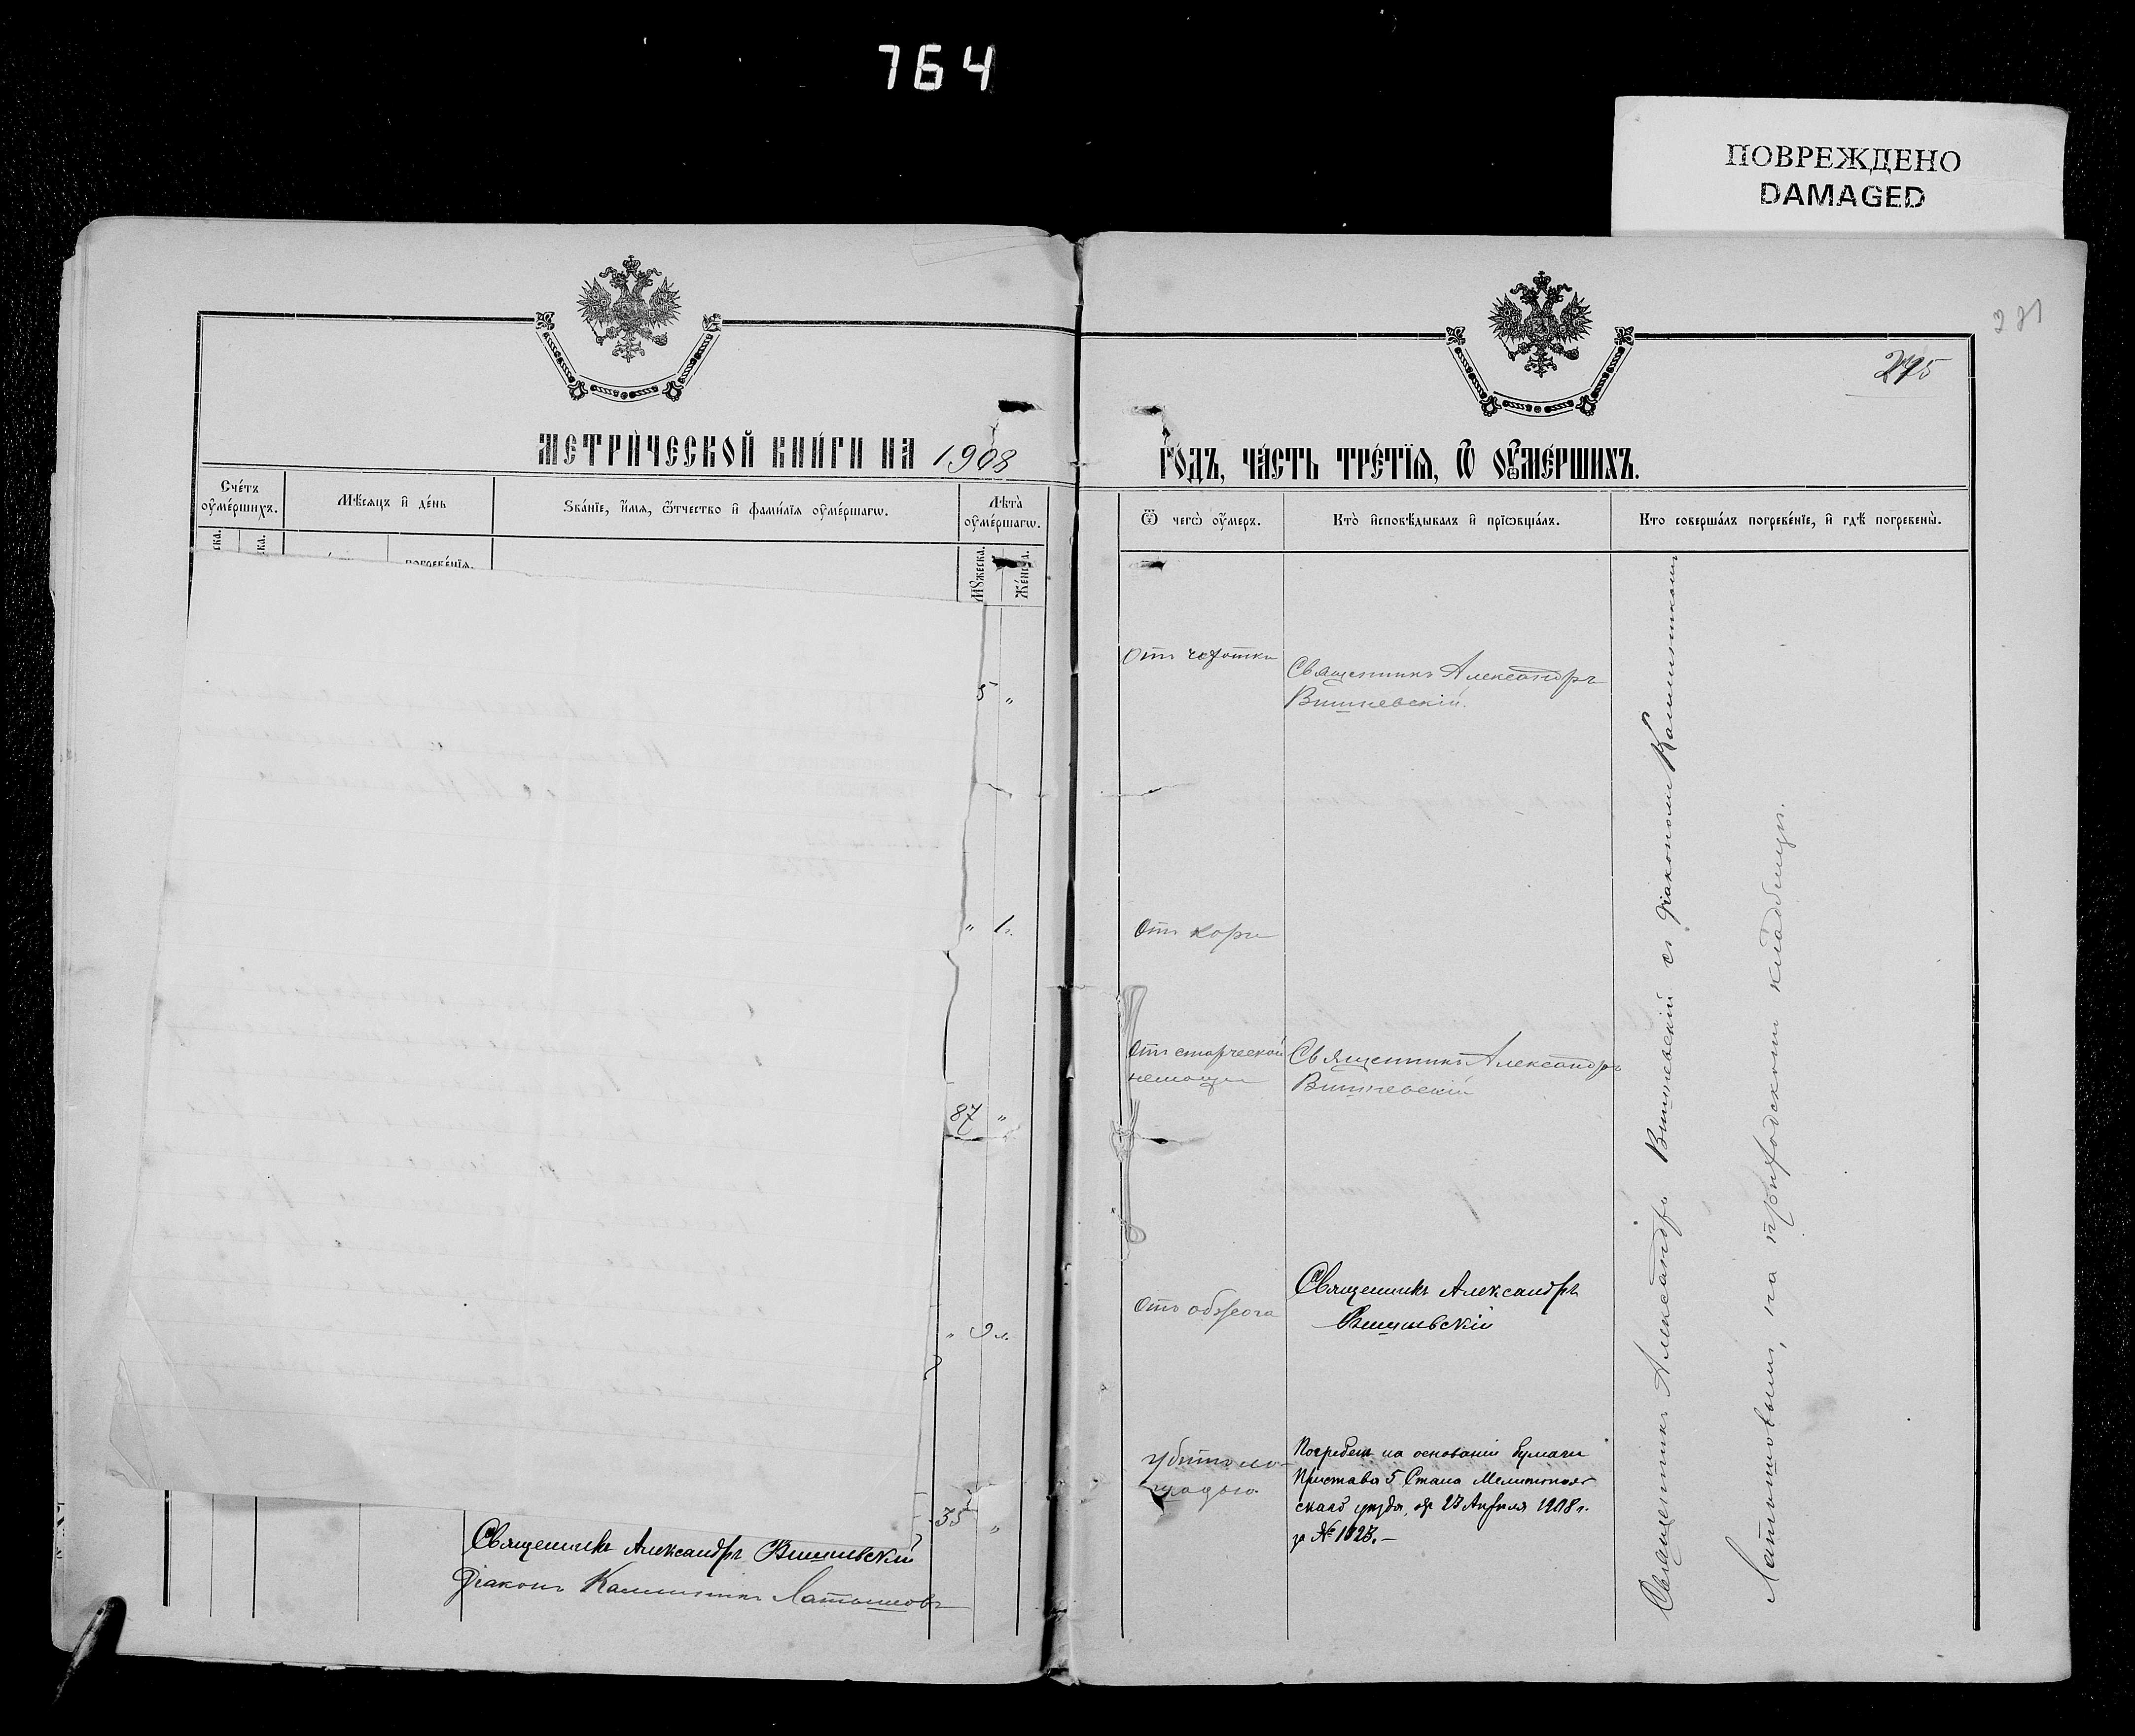 764
ПОВРЕЖДЕНО
DAMAGED
281
295
МЕТРИ́ЧЕСКОЙ КНИ́ГИ НА 1908
ГО́ДЪ, ЧА́СТЬ ТРЕ́ТЇѦ, Ѿ ОУ҆МЕ́РШИХЪ.
Сче́тъ оу҆ме́ршихъ.
Мѣ́сяцъ и҆ де́нь
Зва́нїе, и҆́мя, ѻ҆́тчество и҆ фами́лїя оу҆ме́ршагѡ.
Лѣ́та оу҆ме́ршагѡ.
ска.
ска.
погребе́нїя.
Мꙋ́жеска.
Же́нска.
Ѿ чегѡ̀ оу҆́меръ.
Кто̀ и҆сповѣ́дывалъ и҆ прїѡбща́лъ.
Кто соверша́лъ погребе́нїе, и҆ гдѣ̀ погребены̀.
5 "
Отъ чахотки
Священникъ Александръ
Вишневскій.
" 1 г.
Отъ кори
87 "
Отъ старческой
немощи
Священникъ Александръ
Вишневскій
" 9 л.
Отъ обжога
Священникъ Александръ
Вишневскій
35 "
убитъ ло-
шадью
Погребенъ на основаніи бумаги
Пристава 5 Стана Мелитополь-
скаго уѣзда, отъ 27 Апрѣля 1908 г.
за № 1023.–
Священникъ Александръ Вишневскій съ діакономъ Каллиникомъ
Латышовымъ, на приходскомъ кладбищѣ.
Священникъ Александръ Вишневскій
Діаконъ Каллиникъ Латышовъ